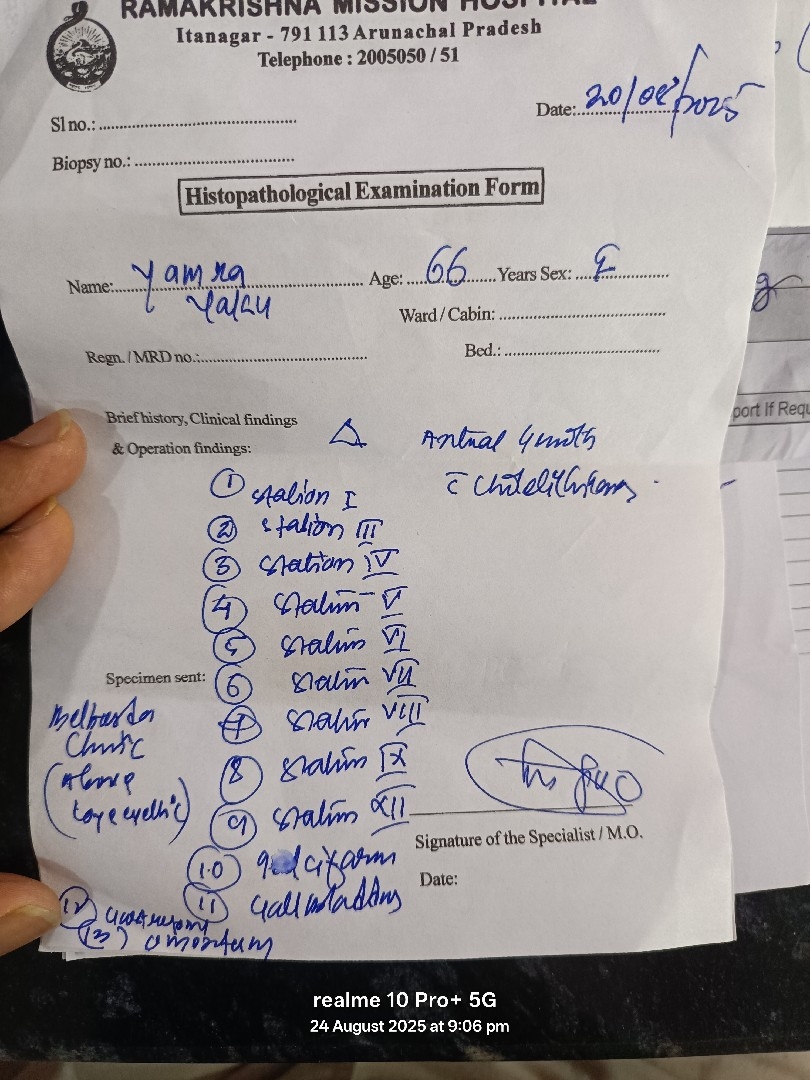 RAMAKRISHNA MISSION HOSPITAL
Itanagar - 791 113 Arunachal Pradesh
Telephone : 2005050 / 51
Date: 20/08/2025
Sl no.:
Biopsy no.:
Histopathological Examination Form
Name: Yamna
Age: 66 Years Sex: F
Ward / Cabin:
Regn. / MRD no.:
Bed.:
Brief history, Clinical findings
& Operation findings:
Δ Antral
c̄
① Station I
② Station III
③ Station IV
④ Station V
⑤ Station VI
⑥ Station VII
⑦ Station VIII
⑧ Station IX
⑨ Station XII
Specimen sent:
Clinic
(Above
10
11
12
13) omentum
Signature of the Specialist / M.O.
Date:
port If Requ
realme 10 Pro+ 5G
24 August 2025 at 9:06 pm